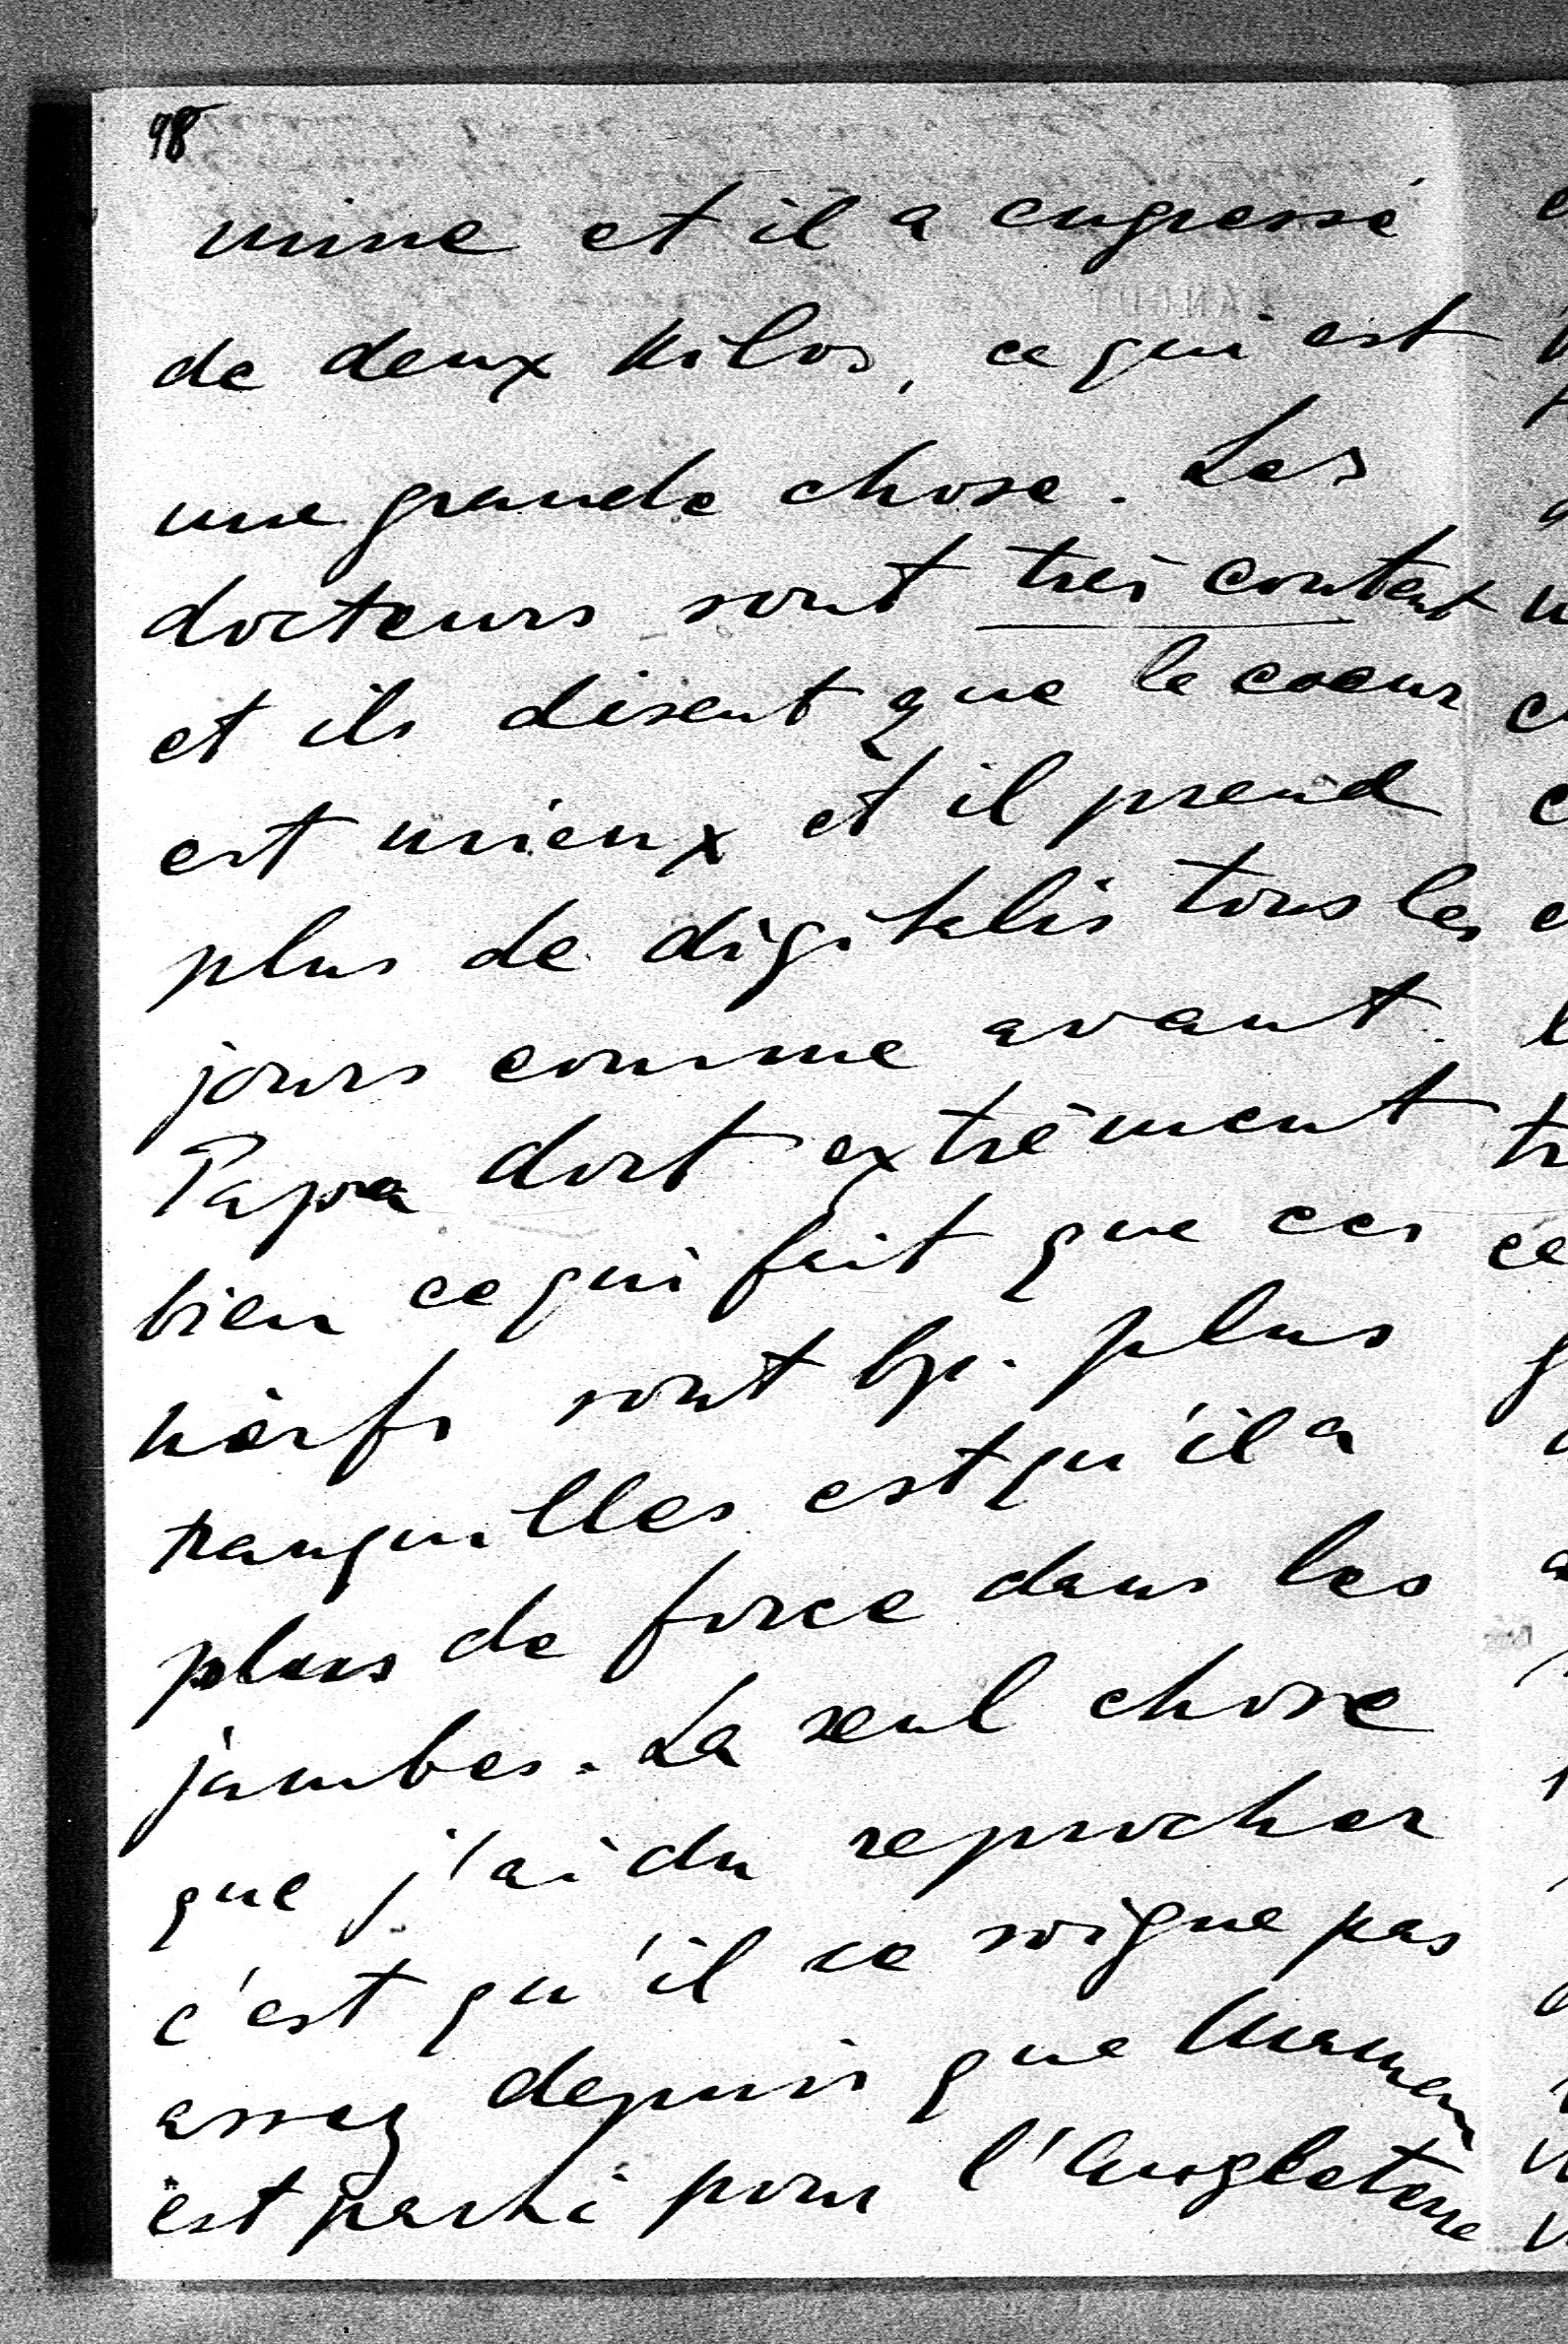 98
mine et il a engressé
de deux kilos, ce qui est
une grande chose. Les
docteurs sont très content
et ils disent que le coeur
est mieux et il prend
plus de digitalis tous les
jours comme avant.
Papa dort extrêment
bien ce qui fait que ces
nèrfs sont bp. plus
tranquilles est qu'il a
plus de force dans les
jambes. La seul chose
que j'ai du reprocher
c'est qu'il ce soigne pas
assez depuis que Maman
est parti pour l'Angleterre